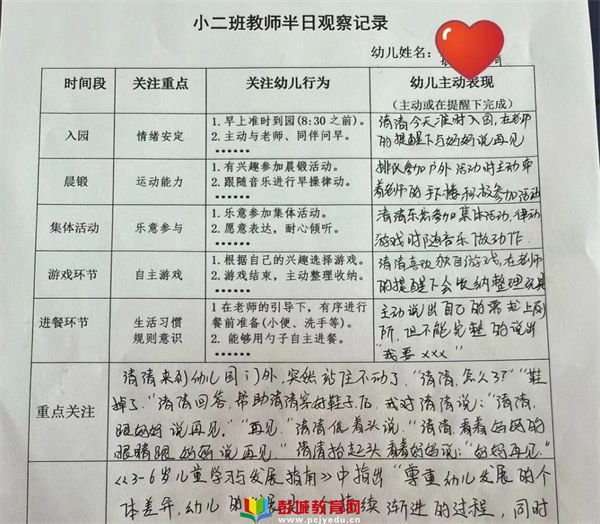 小二班教师半日观察记录
幼儿姓名：
时间段 关注重点 关注幼儿行为 幼儿主动表现
（主动或在提醒下完成）
入园 情绪安定
1. 早上准时到园(8:30 之前)。
2. 主动与老师、同伴问早。
……
清清今天准时入园，在老师
的提醒下与妈妈说再见
晨锻 运动能力
1. 有兴趣参加晨锻活动。
2. 跟随音乐进行早操律动。
……
排队参加户外活动时主动牵
着老师的手，积极参加活动
集体活动 乐意参与
1. 乐意参加集体活动。
2. 愿意表达，耐心倾听。
……
清清乐意参加集体活动，律动
游戏时随音乐做动作.
游戏环节 自主游戏
1. 根据自己的兴趣选择游戏。
2. 游戏结束，主动整理收纳。
……
清清喜欢独自游戏，在老师
的提醒下会收纳整理玩具
进餐环节 生活习惯
规则意识
1 在老师的引导下，有序进行
餐前准备(小便、洗手等)。
2. 能够用勺子自主进餐。
……
主动说出自己的需求上厕
所，但不能完整的说出
“我要xxx”
重点关注
清清来到幼儿园门外，突然站住不动了，“清清，怎么了？”“鞋
掉了。”清清回答，帮助清清穿好鞋子后，我对清清说：“清清，
跟妈妈说再见。”“再见。”清清低着头说。“清清，看着妈妈的
眼睛跟妈妈说再见。”清清抬起头看着妈妈说：“妈妈再见。”
《3-6岁儿童学习与发展指南》中指出“尊重幼儿发展的个
体差异，幼儿的发展是一个持续、渐进的过程，同时
彭城教育网
www.pcjyedu.cn